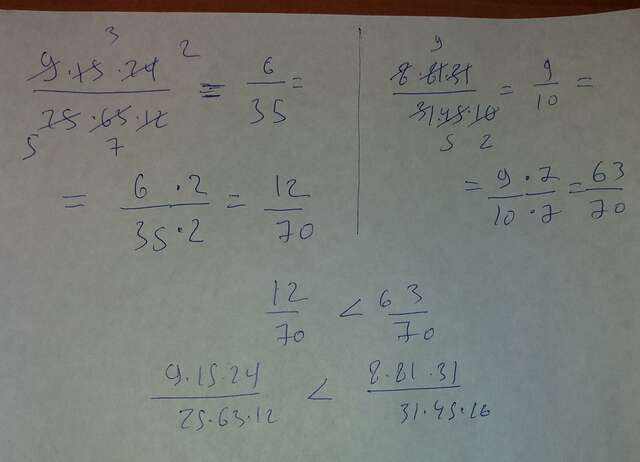 3 2
9·15·24 / 25·63·12 = 6/35 =
5 7
= 6·2 / 35·2 = 12/70
9
8·81·31 / 31·45·16 = 9/10 =
5 2
= 9·7 / 10·7 = 63/70
12/70 < 63/70
9·15·24 / 25·63·12 < 8·81·31 / 31·45·16